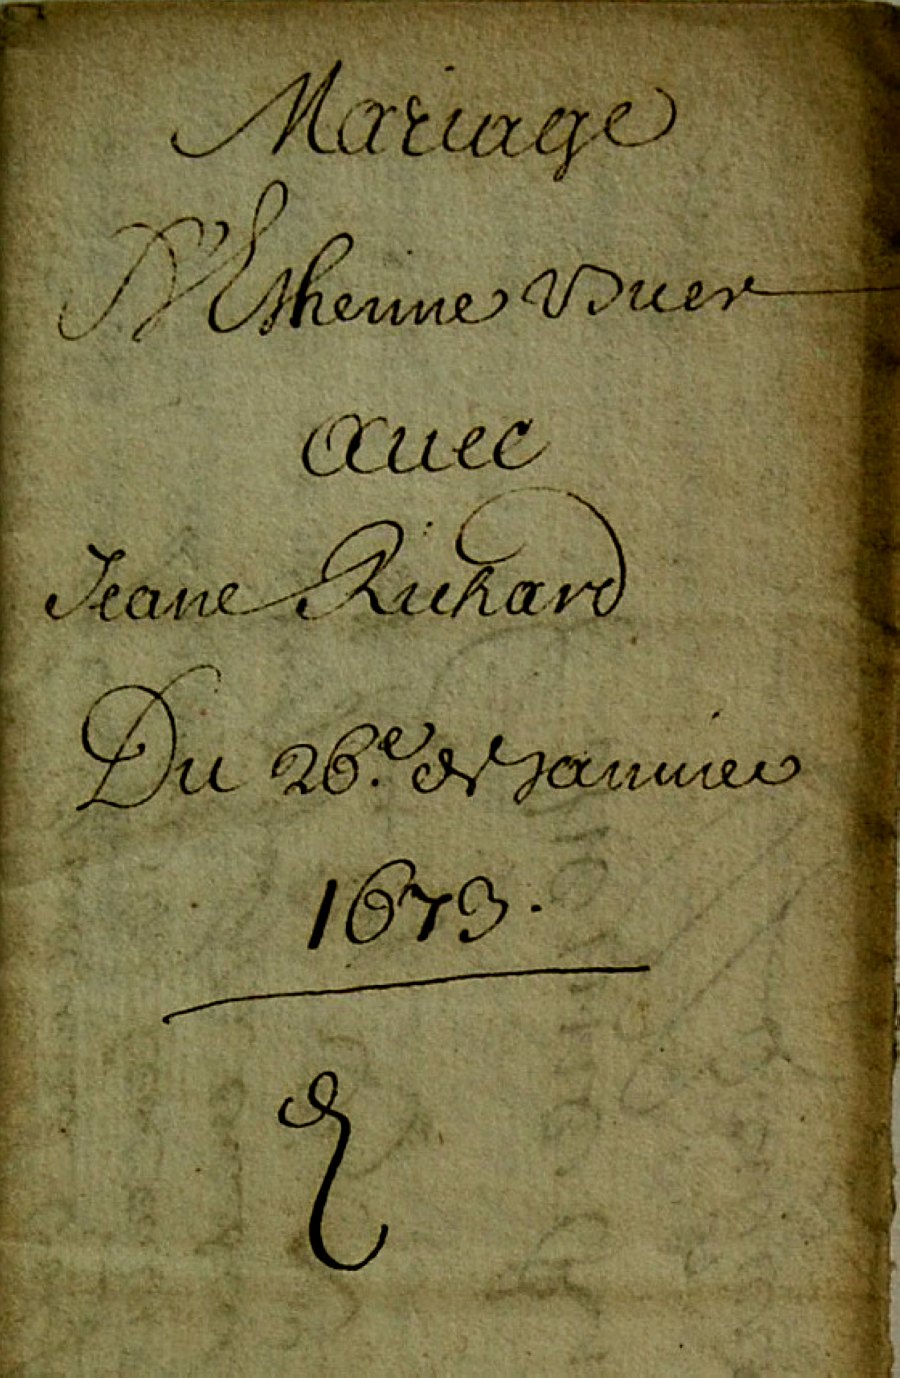 Mariage
D'Esthenne Vuer
auec
Jeane Richard
Du 26.e de Januier
1673.